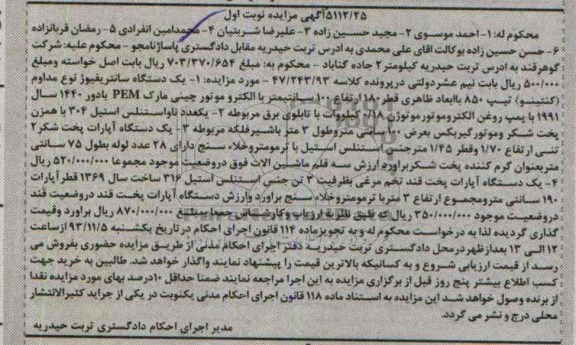 ۵۱۱۲/۲۵آگهی مزایده نوبت اول
محکوم له: ۱- احمد موسوی ۲- مجید حسین زاده ۳- علیرضا شربتیان ۴- محمدامین انفرادی ۵- رمضان قربانزاده
۶- حسن حسین زاده بوکالت اقای علی محمدی به ادرس تربت حیدریه مقابل دادگستری پاساژنامجو - محکوم علیه: شرکت
گوهرقند به ادرس تربت حیدریه کیلومتر ۲ جاده گناباد - محکوم به: مبلغ ۷۰۳/۳۷۰/۶۵۴ ریال بابت اصل خواسته ومبلغ
۵۰۰/۰۰۰ ریال بابت نیم عشردولتی درپرونده کلاسه ۴۷/۲۴۳/۹۳ - مورد مزایده: ۱- یک دستگاه سانتریفیوژ نوع مداوم
(کنتینیو) تیپ ۸۵۰ باابعاد ظاهری قطر ۱۷۰ ارتفاع ۱۰۰ سانتیمتر با الکترو موتور چینی مارک PEM بادور ۱۴۴۰ سال
۱۹۹۱ با پمپ روغن الکتروموتورموتوژن ۰/۱۸ کیلووات با تابلوی برق مربوطه ۲- یکعدد ناواستنلس استیل ۳۰۴ با همزن
پخت شکر وموتورگیربکس بعرض ۶۰ سانتی متروطول ۳ متر باشیرفلکه مربوطه ۳- یک دستگاه آپارات پخت شکر۲
تنی ارتفاع ۱/۷۰ وقطر ۱/۴۵ مترجنس استنلس استیل با ترمومتروخلاء سنج دارای ۲۸ عدد لوله بطول ۷۵ سانتی
متربعنوان گرم کننده پخت شکربراورد ارزش سه قلم ماشین الات فوق دروضعیت موجود مجموعا ۵۲۰/۰۰۰/۰۰۰ ریال
۴- یک دستگاه آپارات پخت قند تخم مرغی بظرفیت ۳ تن جنس استنلس استیل ۳۱۶ ساخت سال ۱۳۶۹ قطر آپارات
۱۹۰ سانتی مترومجموع ارتفاع ۳ متربا ترمومتروخلاء سنج براورد وارزش دستگاه آپارات پخت قند دروضعیت قند
دروضعیت موجود ۳۵۰/۰۰۰/۰۰۰ ریال که طبق نظریه ارزیاب وکارشناس جمعا بمبلغ ۸۷۰/۰۰۰/۰۰۰ ریال براورد وقیمت
گذاری گردیده لذا به درخواست محکوم له وبه تجویزماده ۱۱۴ قانون اجرای احکام درتاریخ یکشنبه ۹۳/۱۱/۵ ازساعت
۱۲ الی ۱۳ بعدازظهردرمحل دادگستری تربت حیدریه دفتر اجرای احکام مدنی از طریق مزایده حضوری بفروش می
رسد از قیمت ارزیابی شروع و به کسانیکه بالاترین قیمت را پیشنهاد نمایند واگذار خواهد شد. طالبین به خرید جهت
کسب اطلاع بیشتر پنج روز قبل از برگزاری مزایده به این اجرا مراجعه نمایند ضمنا حداقل ۱۰درصد بهای مورد مزایده نقدا
از برنده وصول خواهد شد این مزایده به استناد ماده ۱۱۸ قانون اجرای احکام مدنی یکنوبت در یکی از جراید کثیرالانتشار
محلی درج و نشر می گردد.
مدیر اجرای احکام دادگستری تربت حیدریه